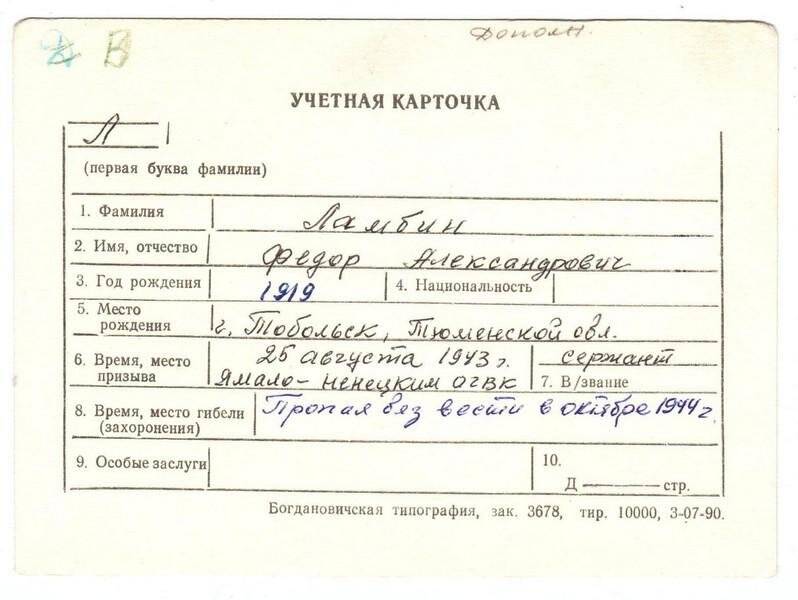 В
Дополн.
УЧЕТНАЯ КАРТОЧКА
Л
(первая буква фамилии)
1. Фамилия Ламбин
2. Имя, отчество Федор Александрович
3. Год рождения 1919 4. Национальность
5. Место рождения г. Тобольск, Тюменской обл.
6. Время, место призыва 25 августа 1943 г. Ямало-ненецким огвк
сержант
7. В/звание
8. Время, место гибели (захоронения) Пропал без вести в октябре 1944 г.
9. Особые заслуги
10.
Д ——— стр.
Богдановичская типография, зак. 3678, тир. 10000, 3-07-90.